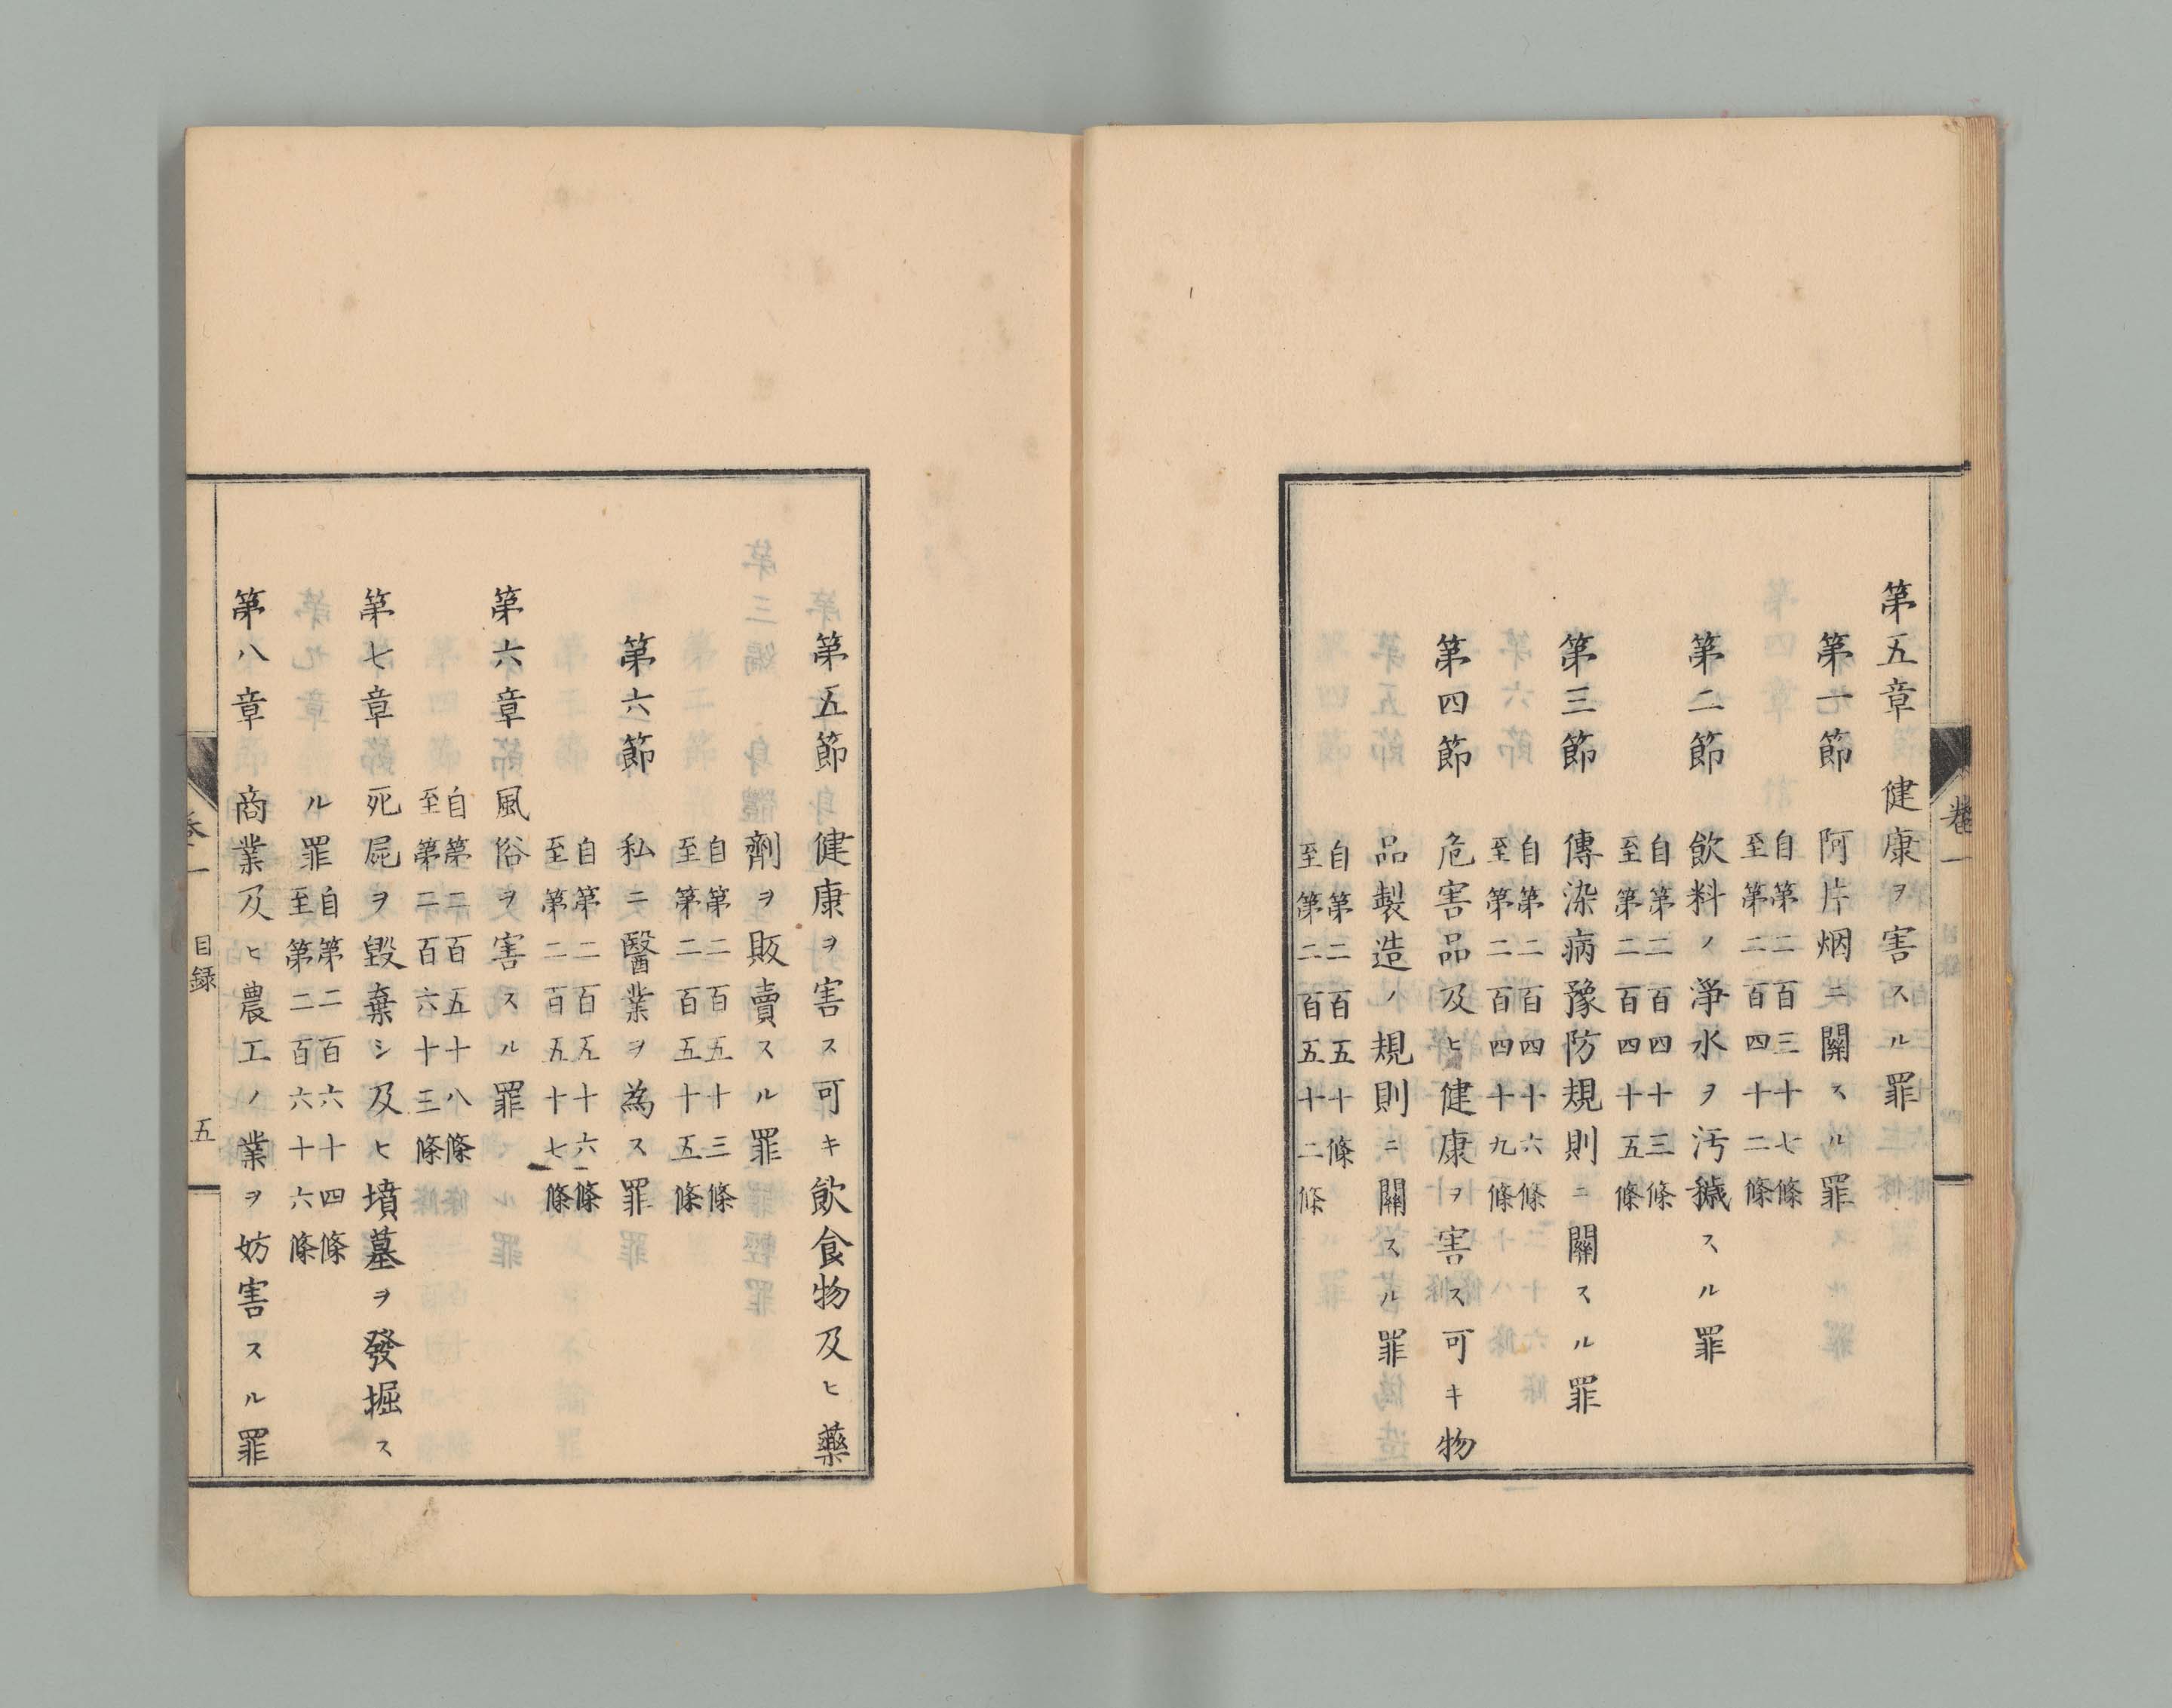 第五章 健康ヲ害スル罪
第一節 阿片烟ニ關スル罪
自第二百三十七條
至第二百四十二條
第二節 飲料ノ淨水ヲ汚穢スル罪
自第二百四十三條
至第二百四十五條
第三節 傳染病豫防規則ニ關スル罪
自第二百四十六條
至第二百四十九條
第四節 危害品及ヒ健康ヲ害ス可キ物
品製造ノ規則ニ關スル罪
自第二百五十條
至第二百五十二條
卷一
第五節 健康ヲ害ス可キ飲食物及ヒ藥
劑ヲ販賣スル罪
自第二百五十三條
至第二百五十五條
第六節 私ニ醫業ヲ為ス罪
自第二百五十六條
至第二百五十七條
第六章 風俗ヲ害スル罪
自第二百五十八條
至第二百六十三條
第七章 死屍ヲ毀棄シ及ヒ墳墓ヲ發掘ス
ル罪
自第二百六十四條
至第二百六十六條
第八章 商業及ヒ農工ノ業ヲ妨害スル罪
卷一 目録 五